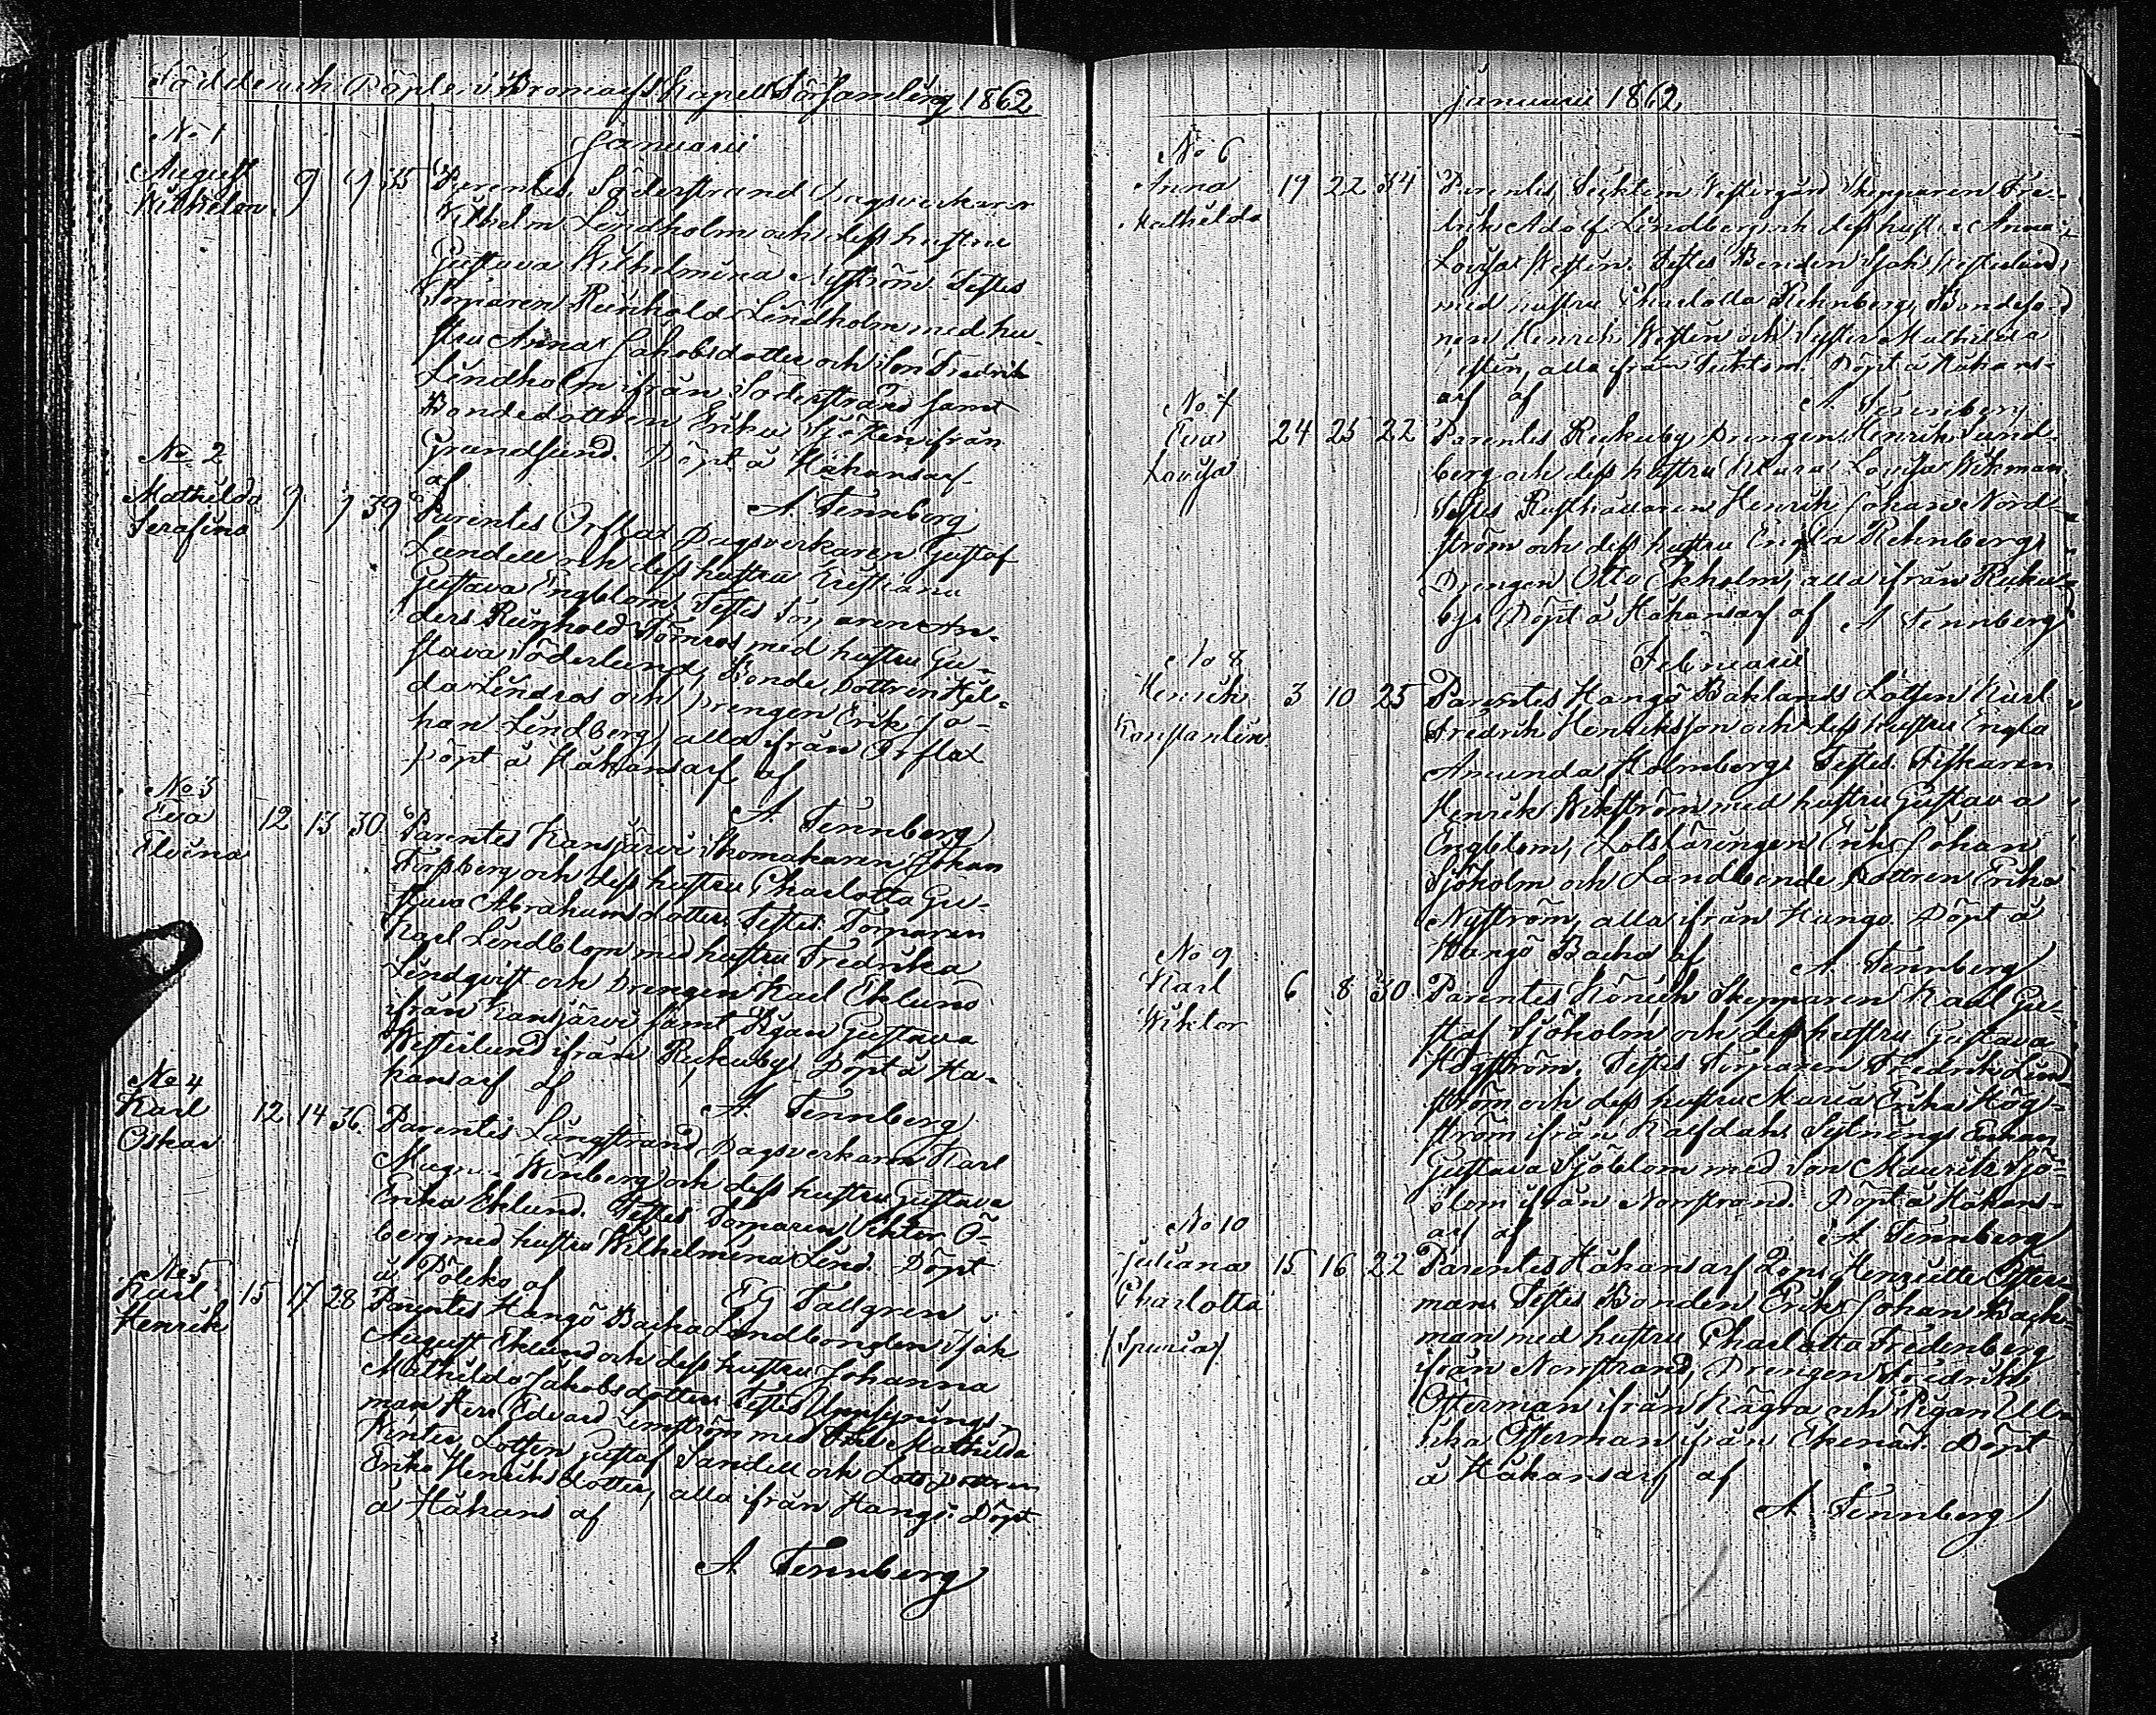 Födde och Döpte i Bromarfs Kapell Församling 1862
Januarii
No 1
August
Wilhelm
9 9 35
Parentes Söderstrand Dagsverkaren
Wilhelm Lindholm och dess hustru
Gustava Wilhelmina Nyström Testes
Torparen Reinhold Lindholm med hu-
stru Anna Jakobsdotter och Son Fredrik
Lindholm ifrån Söderstrand samt
Bondedottren Erika Sjöstén ifrån
Grundsund. Döpt å Håkansarf
af
A Tennberg
No 2
Mathilda
Serafina
9 39
Parentes Orslax Dagsverkaren Gustaf
Lundell och dess hustru Kristiana
Gustava Engblom Testes Torparen An-
ders Reinhold Törnros med hustru Gu-
stava Söderlund, Bonde Dottren Hil-
da Lindros och Drengen Erik Jo-
han Lindberg, alla ifrån Orslax
Döpt å Håkansarf af
A Tennberg
No 3
Eva
Elvina
12 13 30
Parentes Kansjärvi Skomakaren Johan
Forsberg och dess hustru Charlotta Gu-
stava Abrahamsdotter Testes Torparen
Karl Lindblom med hustru Fredrika
Lindqvist och Drengen Karl Eklund
ifrån Kansjärvi samt Pigan Gustava
Westerlund ifrån Rukuby. Döpt å Hå-
kansarf af
A. Tennberg
No 4
Karl
Oskar
12 14 36
Parentes Långstrand Dagsverkaren Karl
Magnus Winberg och dess hustru Gustava
Erika Eklund. Testes Torparen Viktor Ö-
berg med hustru Wilhelmina Lind. Döpt
å af
E G Tallgren
No 5
Karl
Henrik
15 17 28
Parentes Hangö Backa Landbonden Isak
August Eklund och dess hustru Johanna
Mathilda Jakobsdotter Testes Uppsynings-
man Herr Edvard med Mathilda
Winter, Lotsen Gustaf Sandell och Lots Dottren
Erika Henriksdotter, alla ifrån Hangö. Döpt
å Håkans af
A Tennberg
Januarii 1862
No 6
Anna
Mathilda
19 22 34
Parentes, Täcktom Westergård Skepparen Fre-
drik Adolf Lindberg och dess hustru Anna
Lovisa Westén. Testes Bonden Isak Westerlund
med hustru Charlotta Rehnberg, Bondeso-
nen Henrik Westén och Syster Mathilda
Westén, alla ifrån Täcktom. Döpt å Håkans-
arf af
A. Tennberg
No 7
Eva
Lovisa
24 25 22
Parentes Rukuby Drengen Henrik Sund-
berg och dess hustru Klara Lovisa Wikman
Testes Rusthållaren Henrik Johan Nord-
ström och dess hustru Engla Rehnberg,
Drengen Otto Ekholm, alla ifrån Ruku-
by. Döpt å Håkansarf af A Tennberg
Februarii
No 8
Henrik
Konstantin
3 10 25
Parentes Hangö Baklands Lotsen Karl
Fredrik Henriksson och dess hustru Engla
Amanda Holmberg. Testes Fiskaren
Henrik Wikström med hustru Gustava
Engblom, Lotslärlingen Erik Johan
Sjöholm och Landbonde Dottren Erika
Nyström, alla ifrån Hangö. Döpt å
Hangö Backa af
A Tennberg
No 9
Karl
Wiktor
6 8 30
Parentes Skepparen Karl Gu-
staf Sjöholm och dess hustru Gustava
Högström. Testes Torparen Fredrik Lind-
ström och dess hustru Maria Erika Hög-
ström ifrån Kalfdahl Sytnings Enkan
Gustava Sjöblom med Son Maurits Sjö-
blom ifrån Norrstrand. Döpt å Håkans-
arf af
A Tennberg
No 10
Juliana
Charlotta
(Spuria)
15 16 22
Parentes Håkansarf Henriette Öster-
man. Testes Bonden Erik Johan Back-
man med hustru Charlotta Fredenberg
ifrån Norrstrand, Drengen Fredrik
Österman ifrån Kägra och Pigan Ul-
rika Österman ifrån Ekenäs. Döpt
å Håkansarf af
A Tennberg